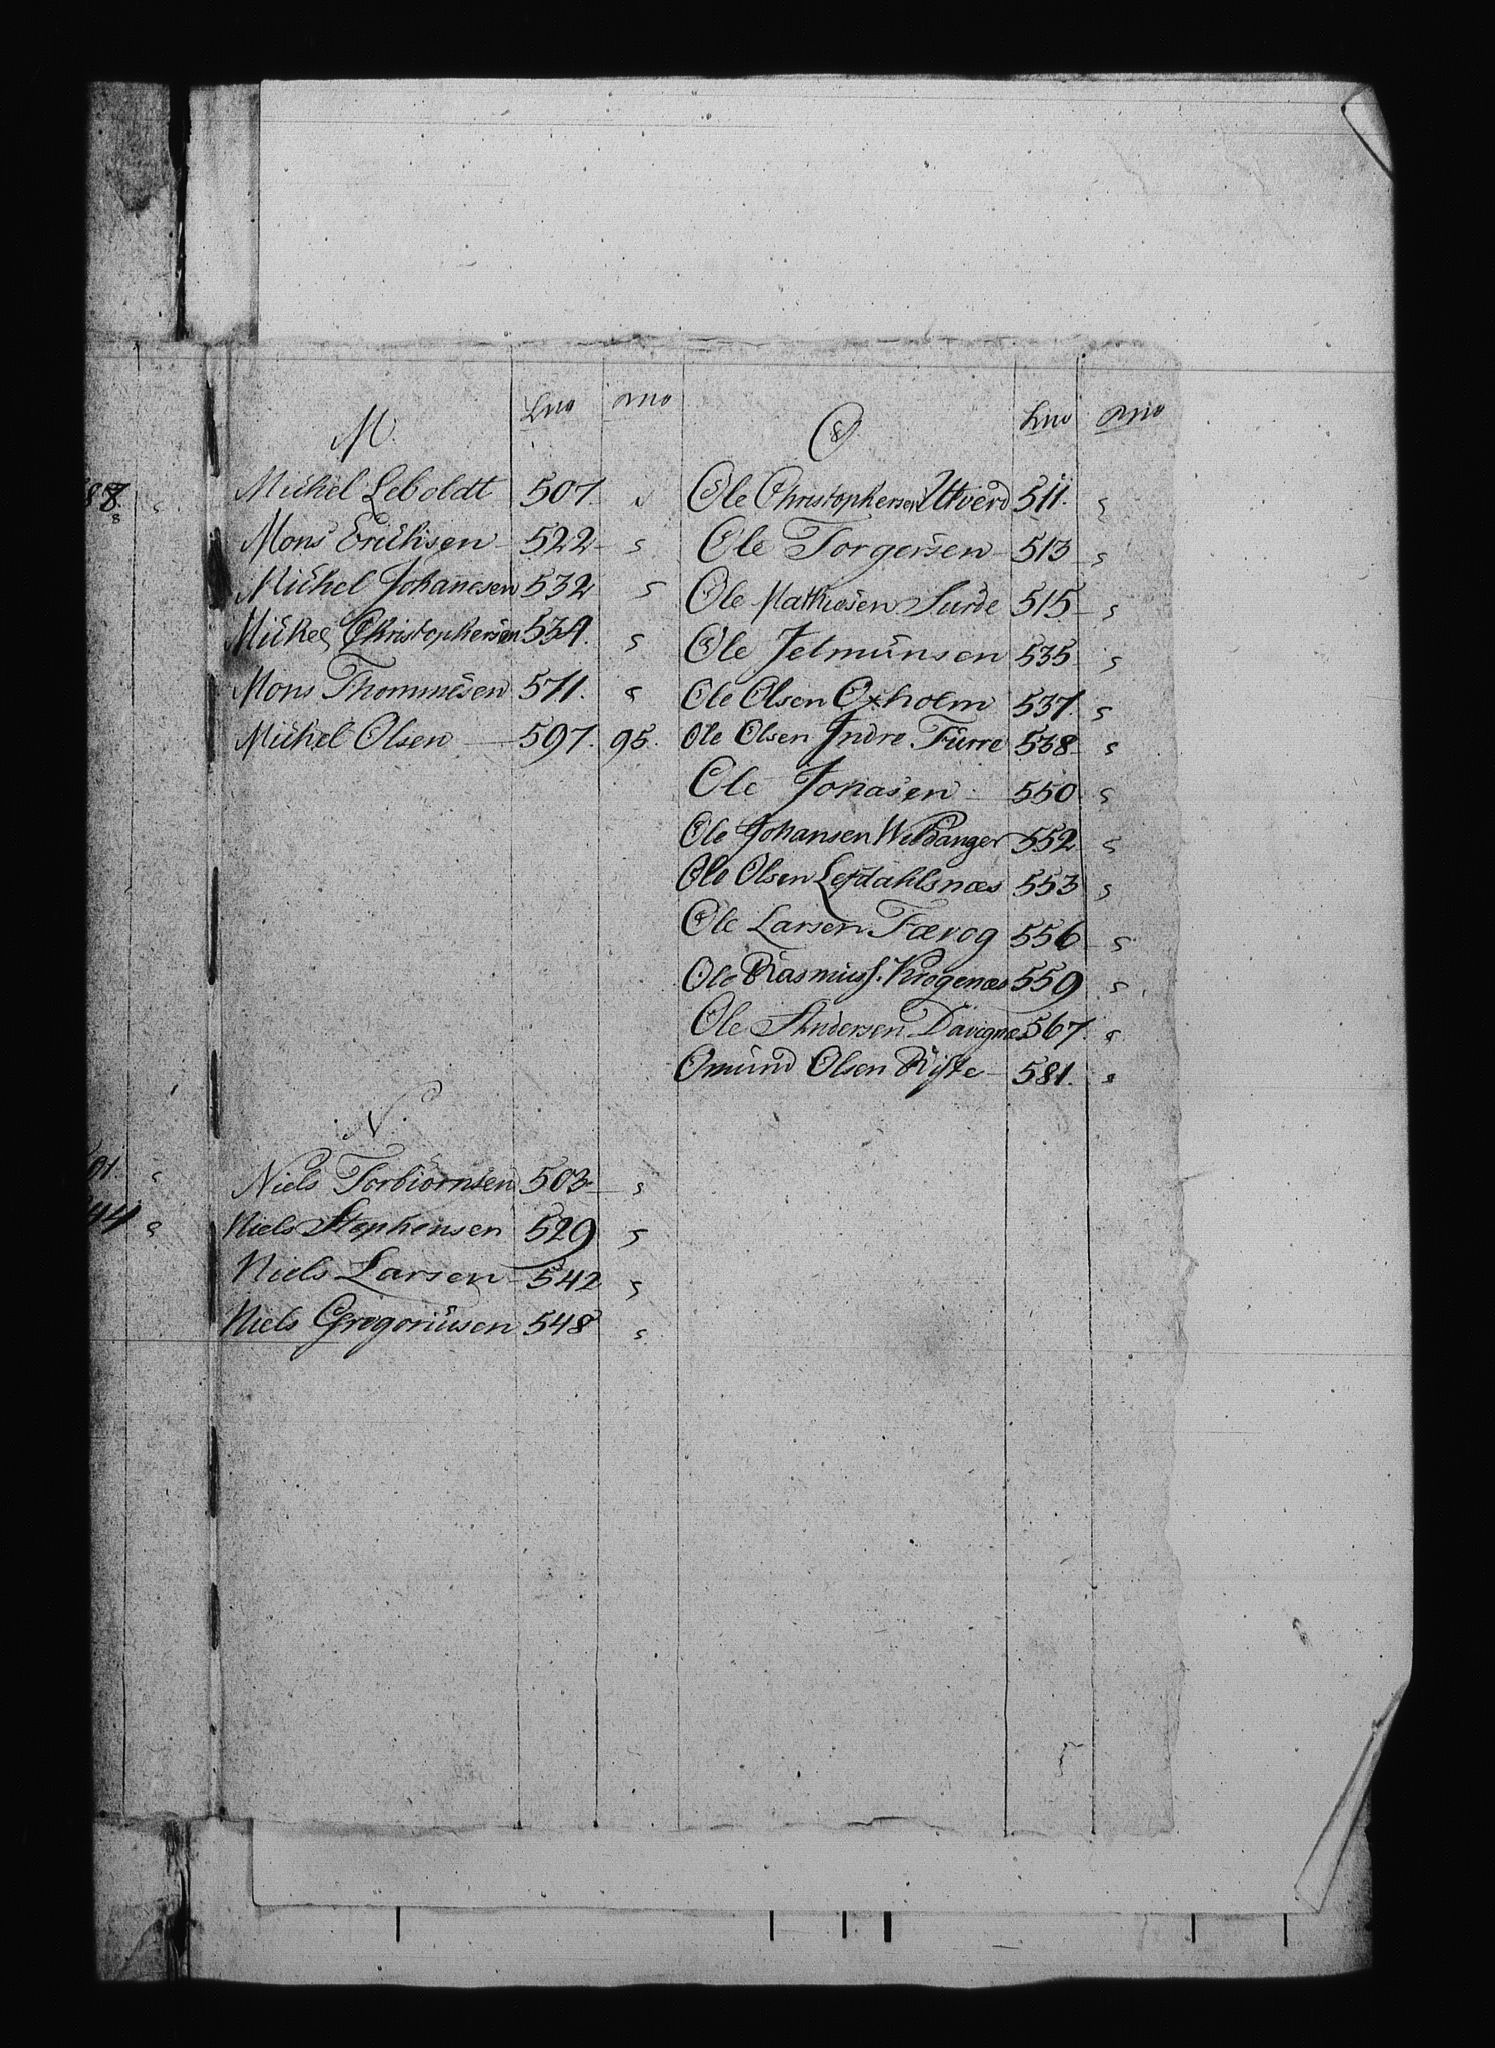 M.
Lno
Rno
Michel Leboldt 507. s
Mons Erichsen 522 s
Michel Johanesen 532 s
Mickel Christophersen 534. s
Mons Thommesen 571. s
Michel Olsen 597. 95.
N.
Niels Torbiörnsen 503 s
Niels Stephensen 529 s
Niels Larsen 542 s
Niels Gregoriusen 548 s
O.
Lno
Rno
Ole Christophersen Utverd 511. s
Ole Torgersen 513 s
Ole Mathiesen Surde 515 s
Ole Jetmünsen 535 s
Ole Olsen Oxholm 537. s
Ole Olsen Indre Fürre 538 s
Ole Jonasen 550 s
Ole Johansen Weldanger 552 s
Ole Olsen Lefdahlsnæs 553 s
Ole Larsen Færog 556 s
Ole Rasmuss. Krogenæs 559 s
Ole Andersen 567. s
Omünd Olsen Riste 581. s